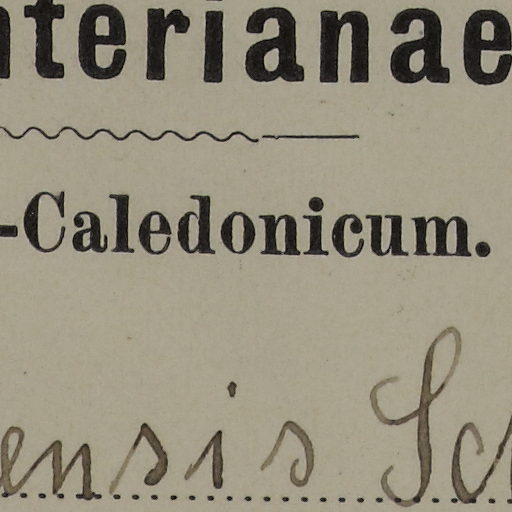 nterianae
-Caledonicum.
ensis Sc